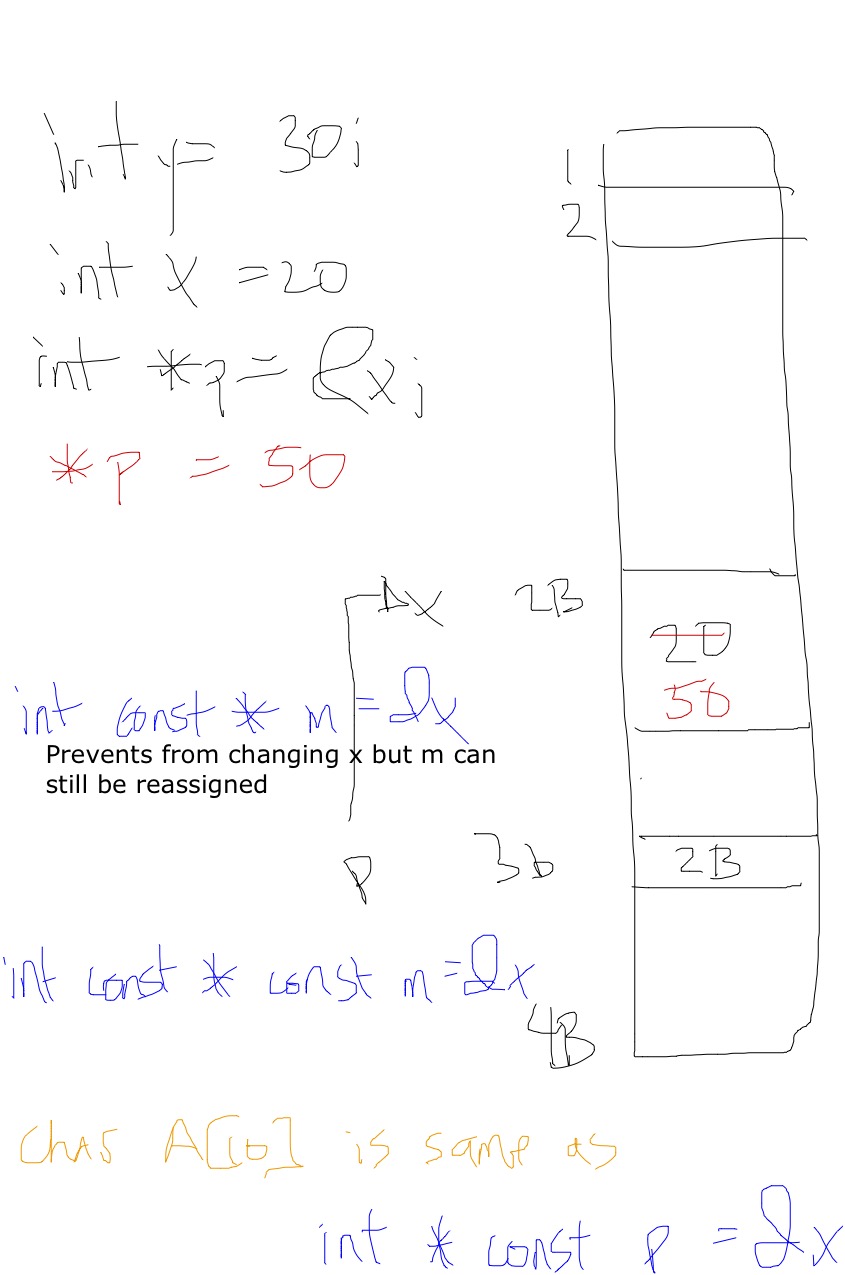 int y= 30;
1
2
int x =20
int *p= &x;
*p = 50
x 2B
20
50
int const * m = &x
Prevents from changing x but m can
still be reassigned
p 3b
2B
int const * const m=&x
4B
char A[10] is same as
int * const p = &x